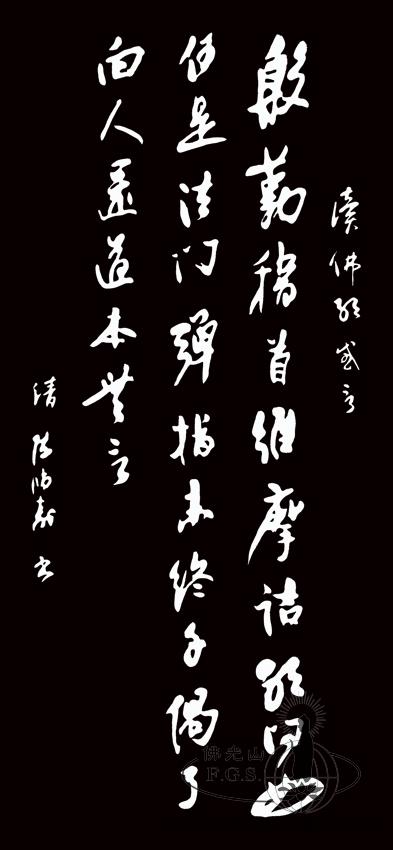 讀佛感言
殷勤稽首維摩詰敢問如
何是法门彈指未終千偈了
向人還道本無言
清
書
佛光山
F.G.S.